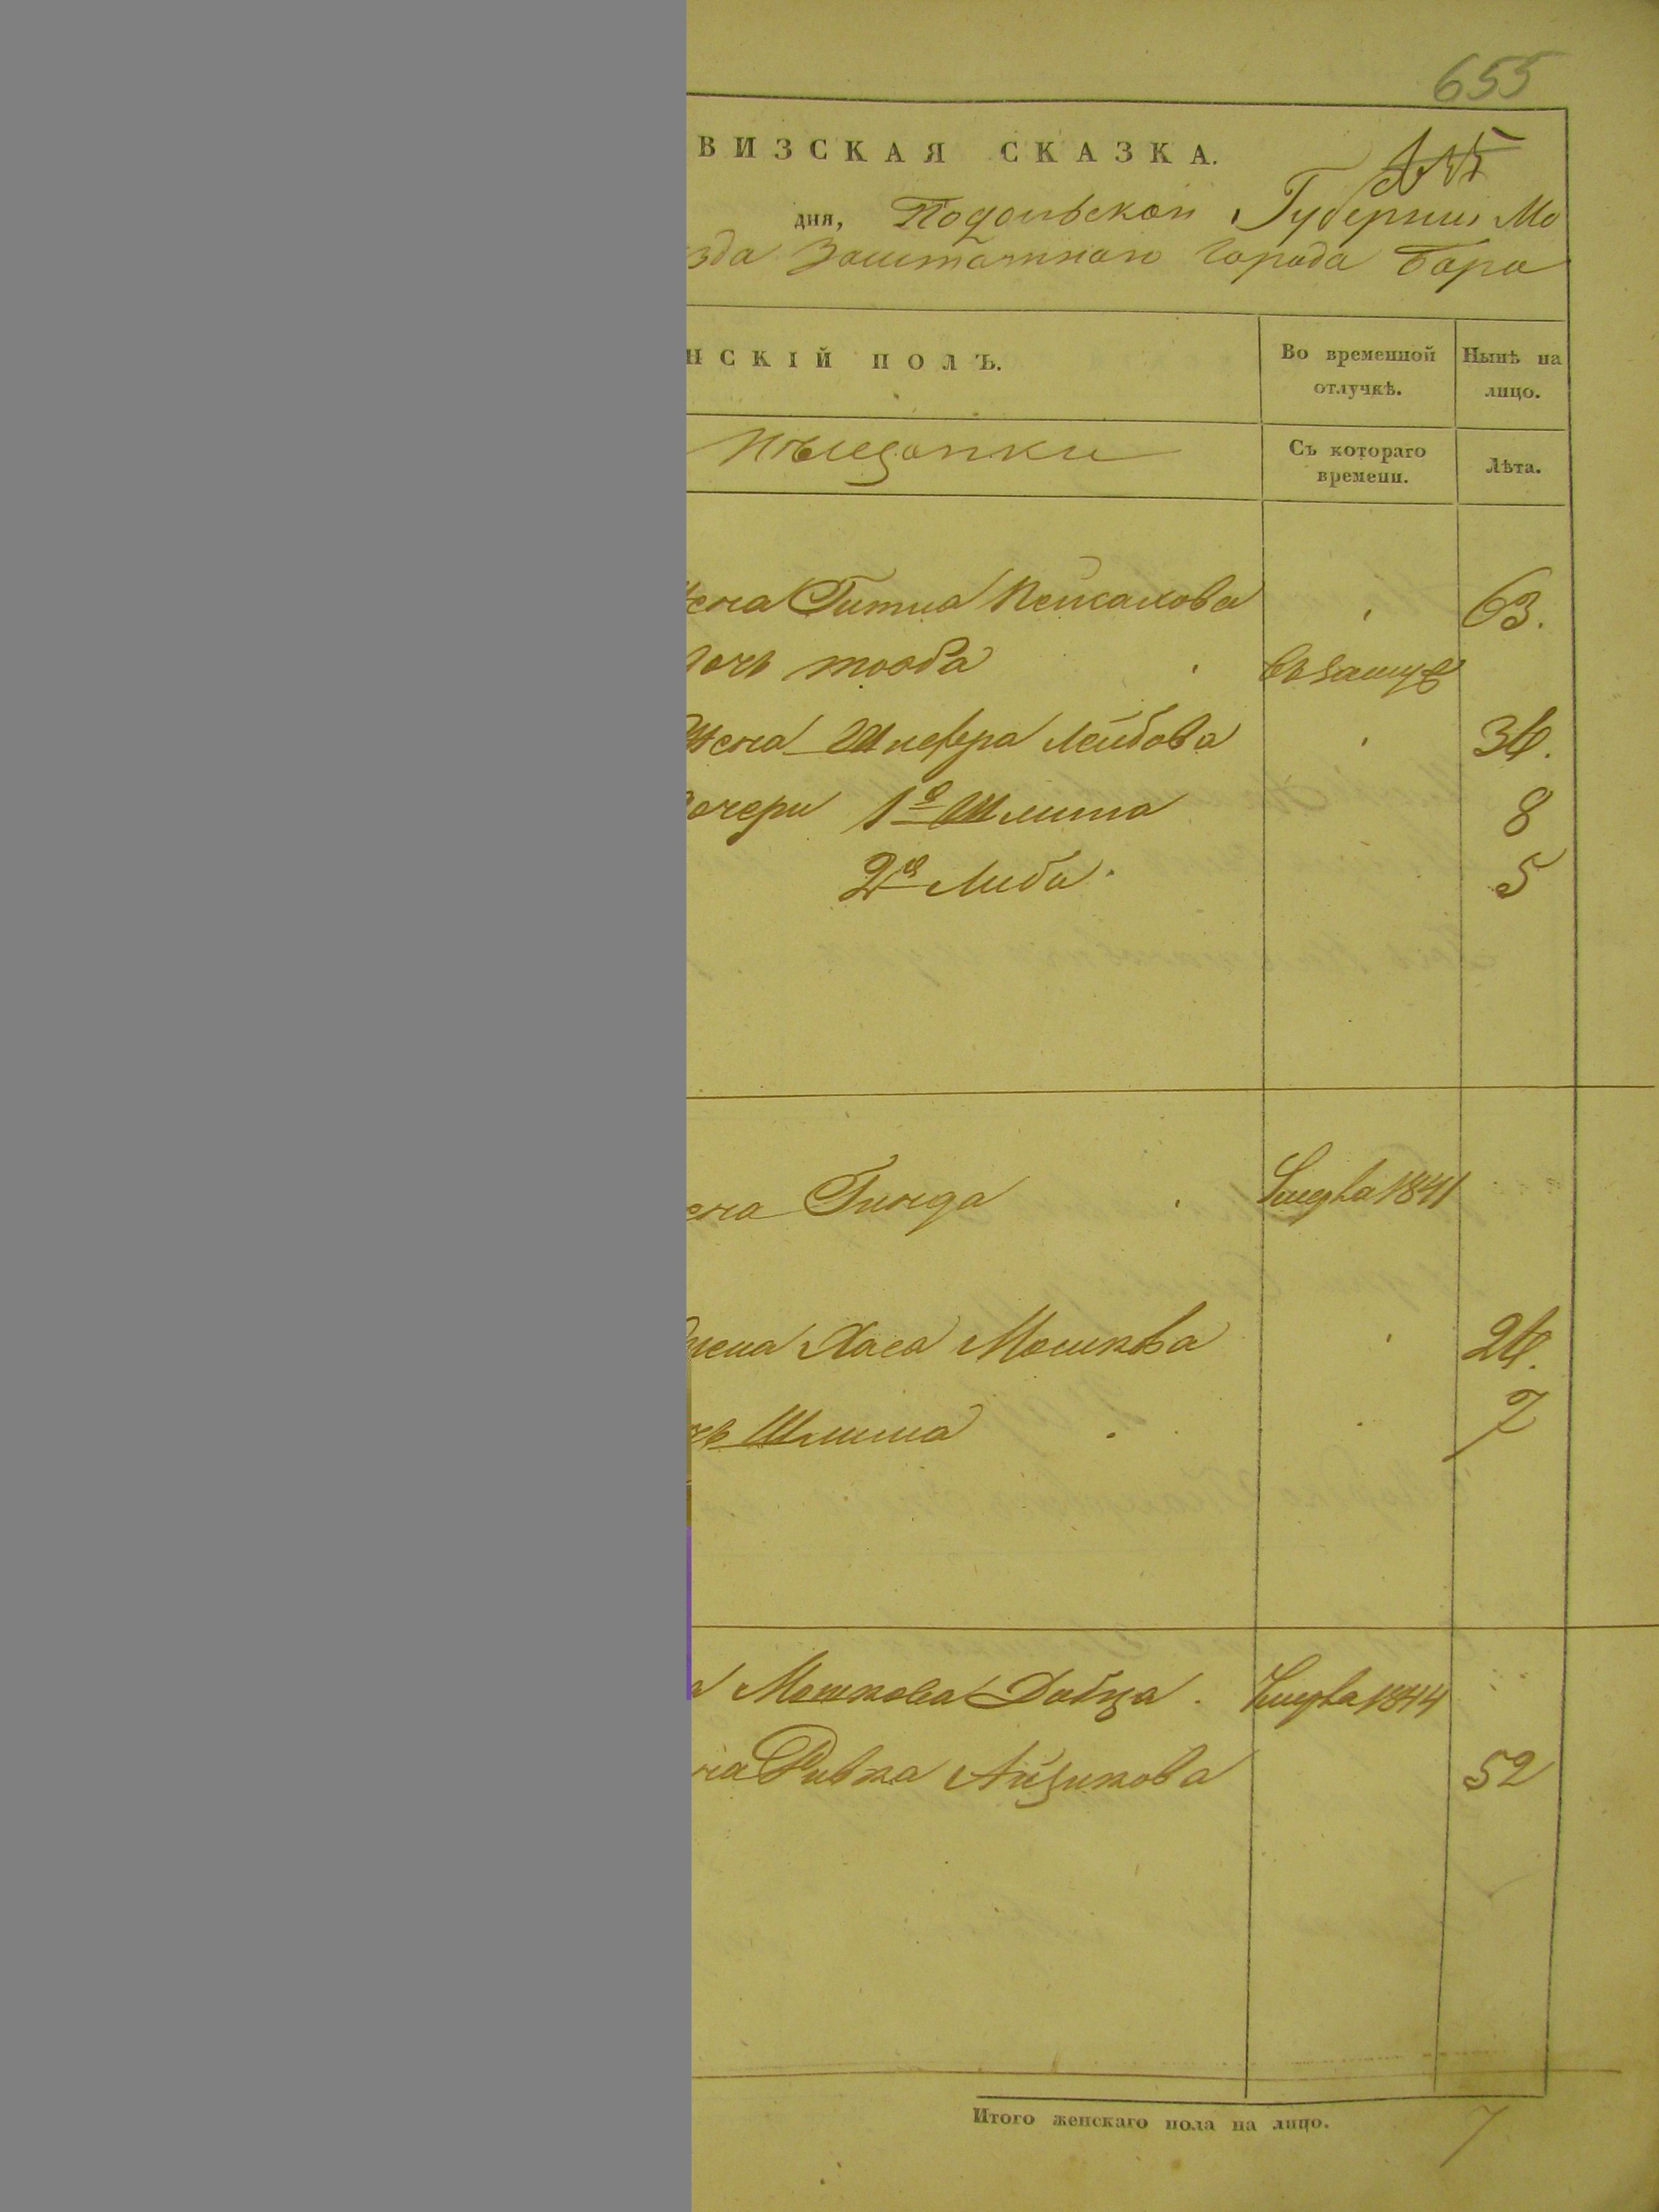 655
ВИЗСКАЯ СКАЗКА.
дня, Подольской Губернии Мо
зда Заштатнаго города Бара
НСКІЙ ПОЛЪ.
Во временной отлучкѣ.
Нынѣ на лицо.
мѣщанки
Съ котораго времени.
Лѣта.
жена Гитля Пейсахова 63.
дочь тоба въ замуж
Жена Шпефра Лейбова 36.
дочери 1я 8
2я Либа. 5
ена Гинда 1841
жена Хаса Мошкова 26.
чь 7
Мошкова Добца. 1844
на Ривка Айзикова 52
Итого женскаго пола на лицо. 7